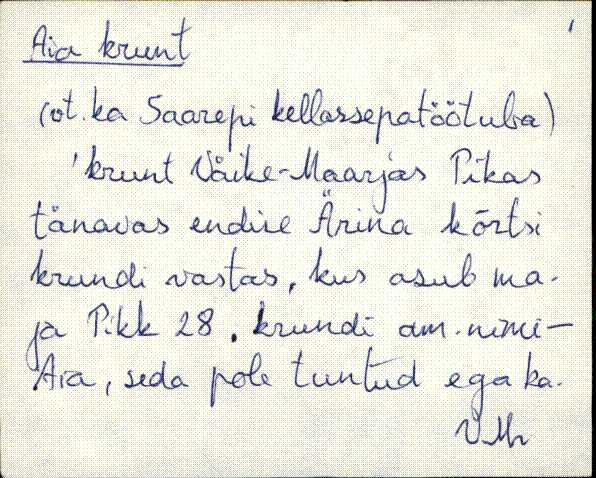 Aia krunt
(vt. ka Saarepi kellassepatöötuba)
'krunt Väike-Maarjas Pikas
tänavas endise Ärina kõrtsi
krundi vastas, kus asub ma-
ja Pikk 28, krundi am. nimi-
Aia, seda pole tuntud ega ka-
VMr